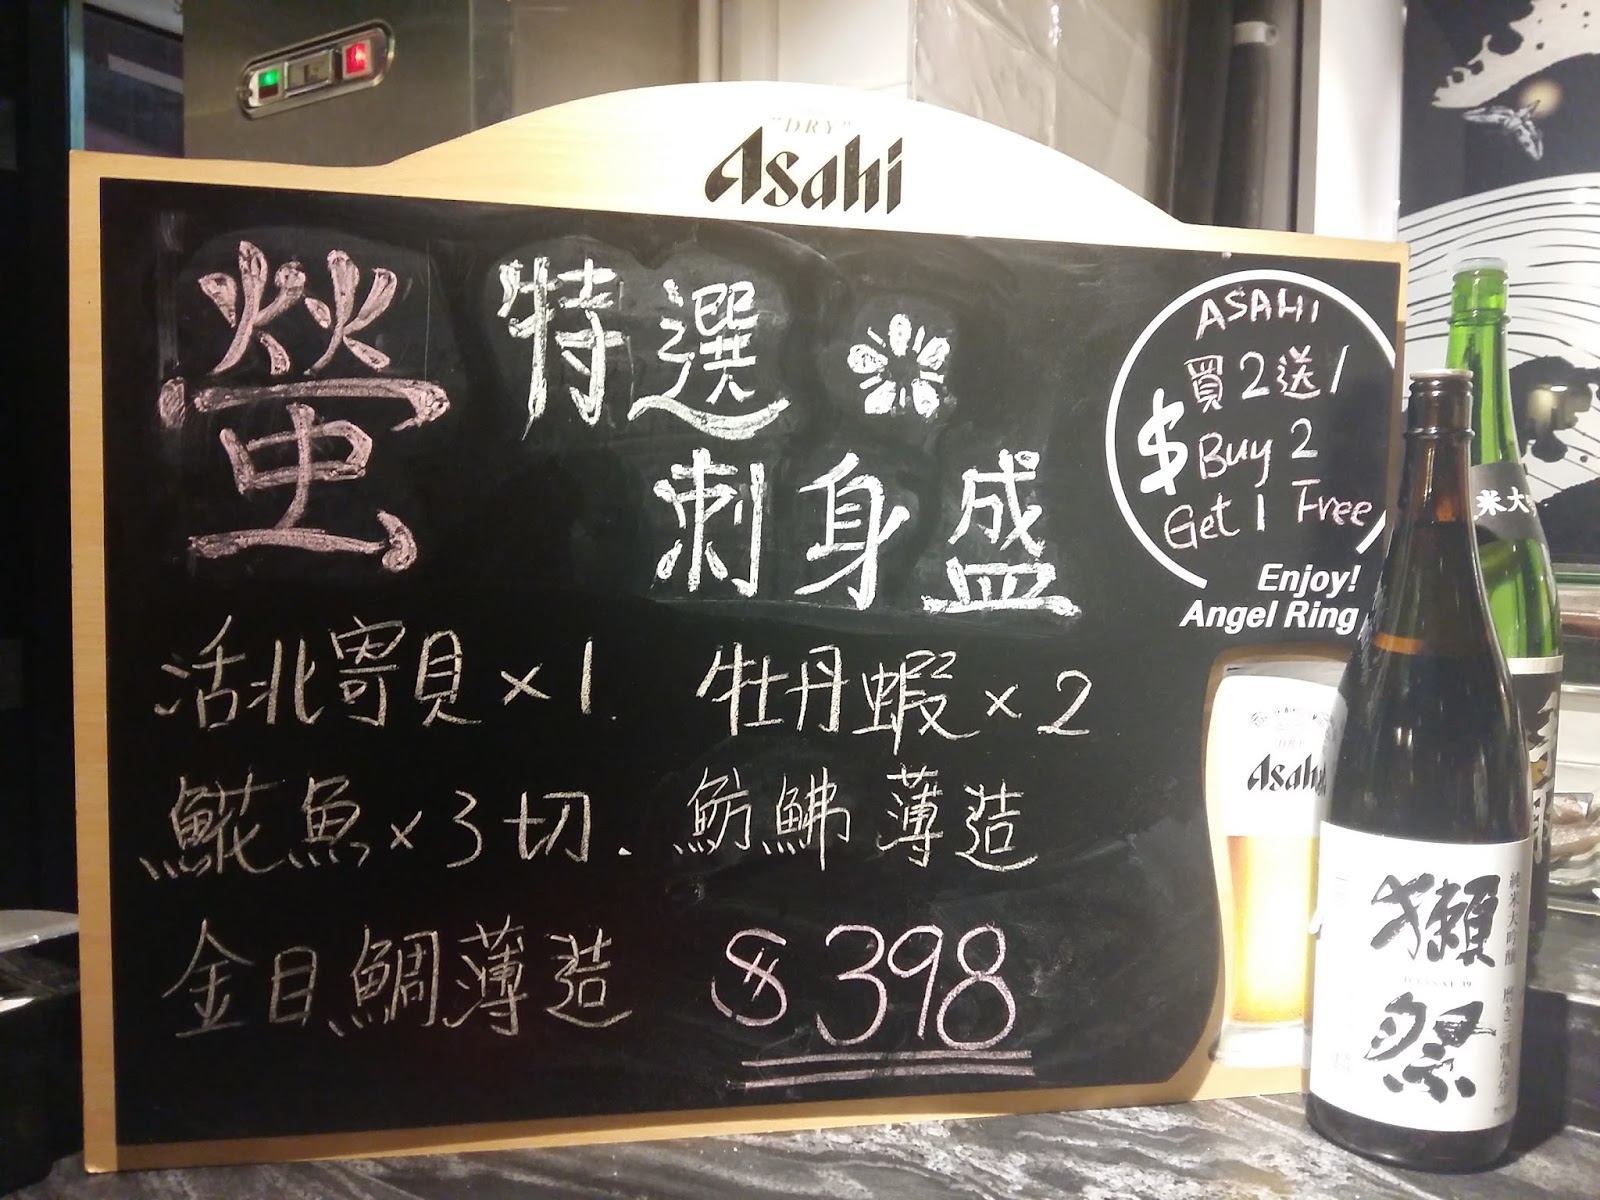 "DRY"
Asahi
螢 特選
刺身盛
活北寄貝×1. 牡丹蝦×2
鯱魚×3切. 魴鮄薄造
金目鯛薄造 $398
ASAHI
買2送1
$ Buy 2
Get 1 Free
Enjoy!
Angel Ring
DRY
Asahi
獺祭
純米大吟醸 磨き三割九分
米大